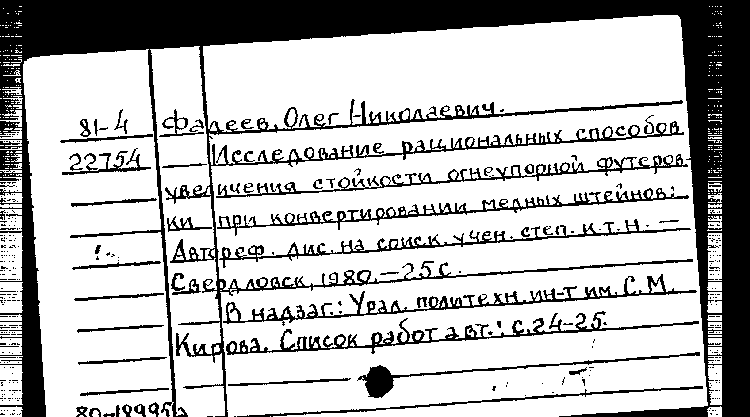 81-4 Фадеев, Олег Николаевич.
22754 Исследование рациональных способов
увеличения стойкости огнеупорной футеров-
ки при конвертировании медных штейнов:
Автореф. дис. на соиск. учен. степ. к.т.н. —
Свердловск, 1980. — 25 с.
В надзаг.: Урал. политехн. ин-т им. С.М.
Кирова. Список работ авт.: с. 24-25.
80-18995а